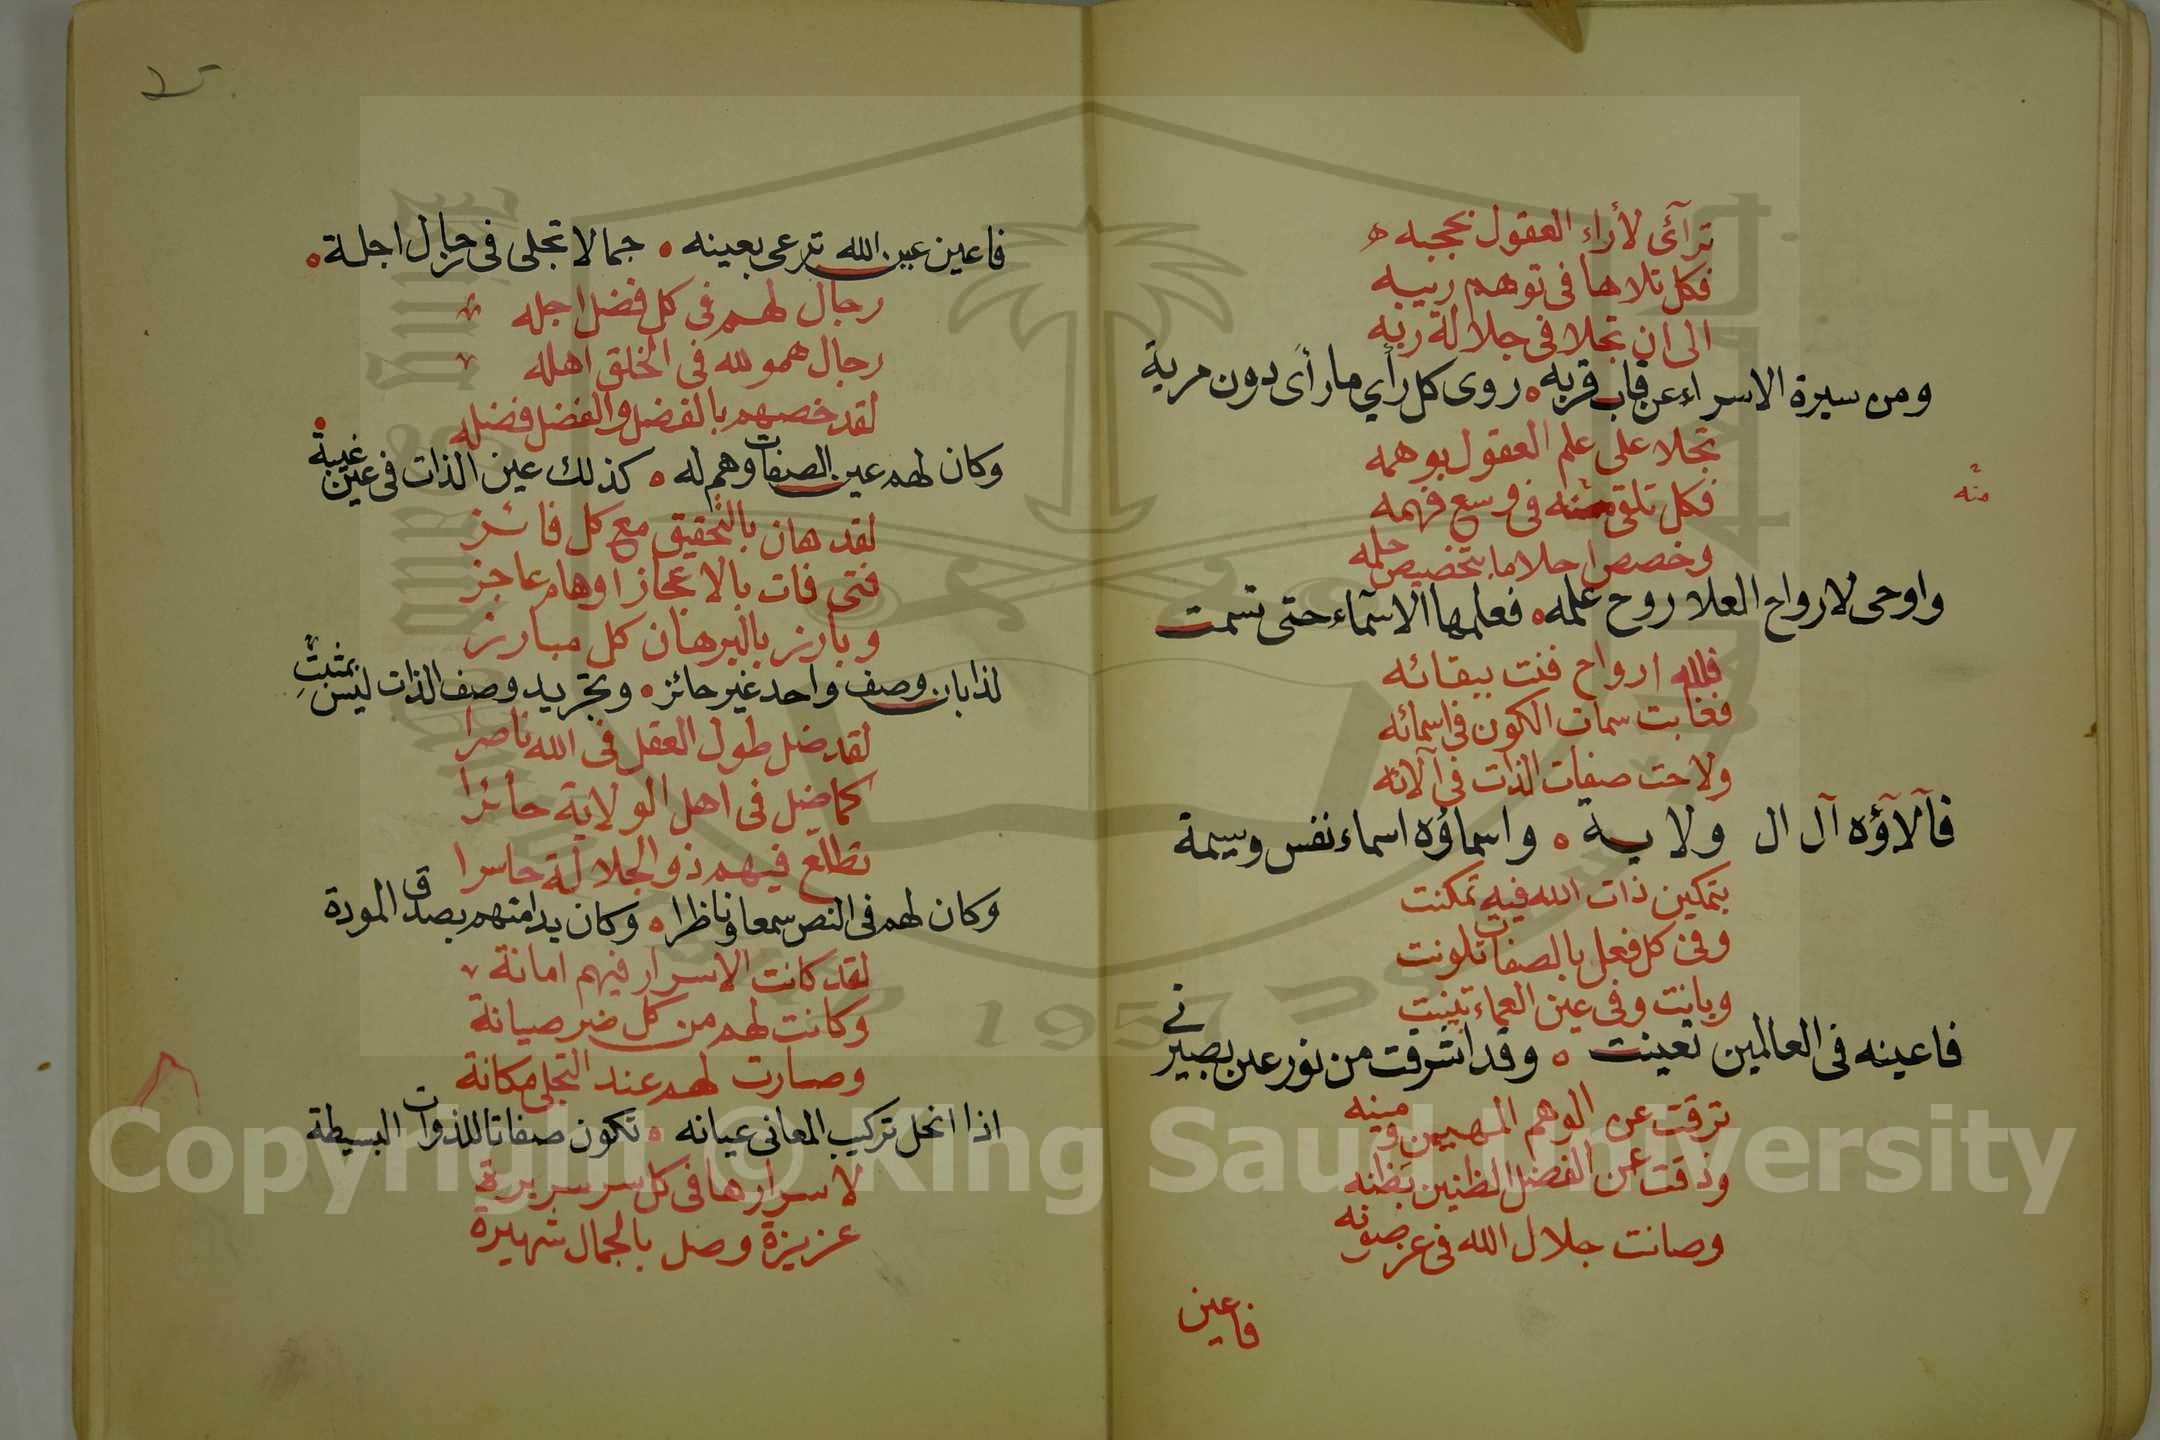 ترآئى لأراء العقول بحجبه
فكل تلاها في توهم ريبه
الى ان تجلا في جلالة ربه
ومن سيرة الاسراء عن قاب قربه روى كل رأي ما رأى دون مرية
تجلا على علم العقول بوهمه
فكل تلقى منه في وسع فهمه
منه
وخصص احلاما بتخصيص حلمه
واوحى لارواح العلا روح علمه فعلمها الاسماء حتى تسمت
فلله ارواح فنت ببقائه
فغابت سمات الكون في اسمائه
ولاحت صفات الذات في آلائه
فآلاؤه آل ال ولاية واسماؤه اسماء نفس وسيمة
بتمكين ذات الله فيه تمكنت
وفي كل فعل بالصفات تلونت
وبانت وفي عين العماء تبينت
فاعينه في العالمين تعينت وقد اشرقت من نور عين بصيرتي
ترقت عن الوهم المهين ومينه
وذقت عن الفضل الظنين بظنه
وصانت جلال الله في عز صونه
فاعين
فاعين عين الله ترعى بعينه جمالا تجلى في رجال اجلة
رجال لهم في كل فضل اجله
رجال همو لله في الخلق اهله
لقد خصهم بالفضل والفضل فضله
وكان لهم عين الصفات وهم له كذلك عين الذات في عين غيبة
لقد هان بالتحقيق مع كل فائز
فتى فات بالاعجاز اوهام عاجز
وبارز بالبرهان كل مبارز
لذا بان وصف واحد غير حائز وتجريد وصف الذات ليس بمثبت
لقد ضل طول العقل في الله ناصرا
كما ضل في اهل الولاية حائرا
تطلع فيهم ذو الجلالة حاسرا
وكان لهم في النص سمعا وناظرا وكان يدا منهم بصدق المودة
لقد كانت الاسرار فيهم امانة
وكانت لهم من كل ضر صيانة
وصارت لهم عند التجلي مكانة
اذا انحل تركيب المعاني عيانه تكون صفاتا للذوات البسيطة
لاسرارها في كل سر سريرة
عزيزة وصل بالجمال شهيرة
Copyright © King Saud University
1957